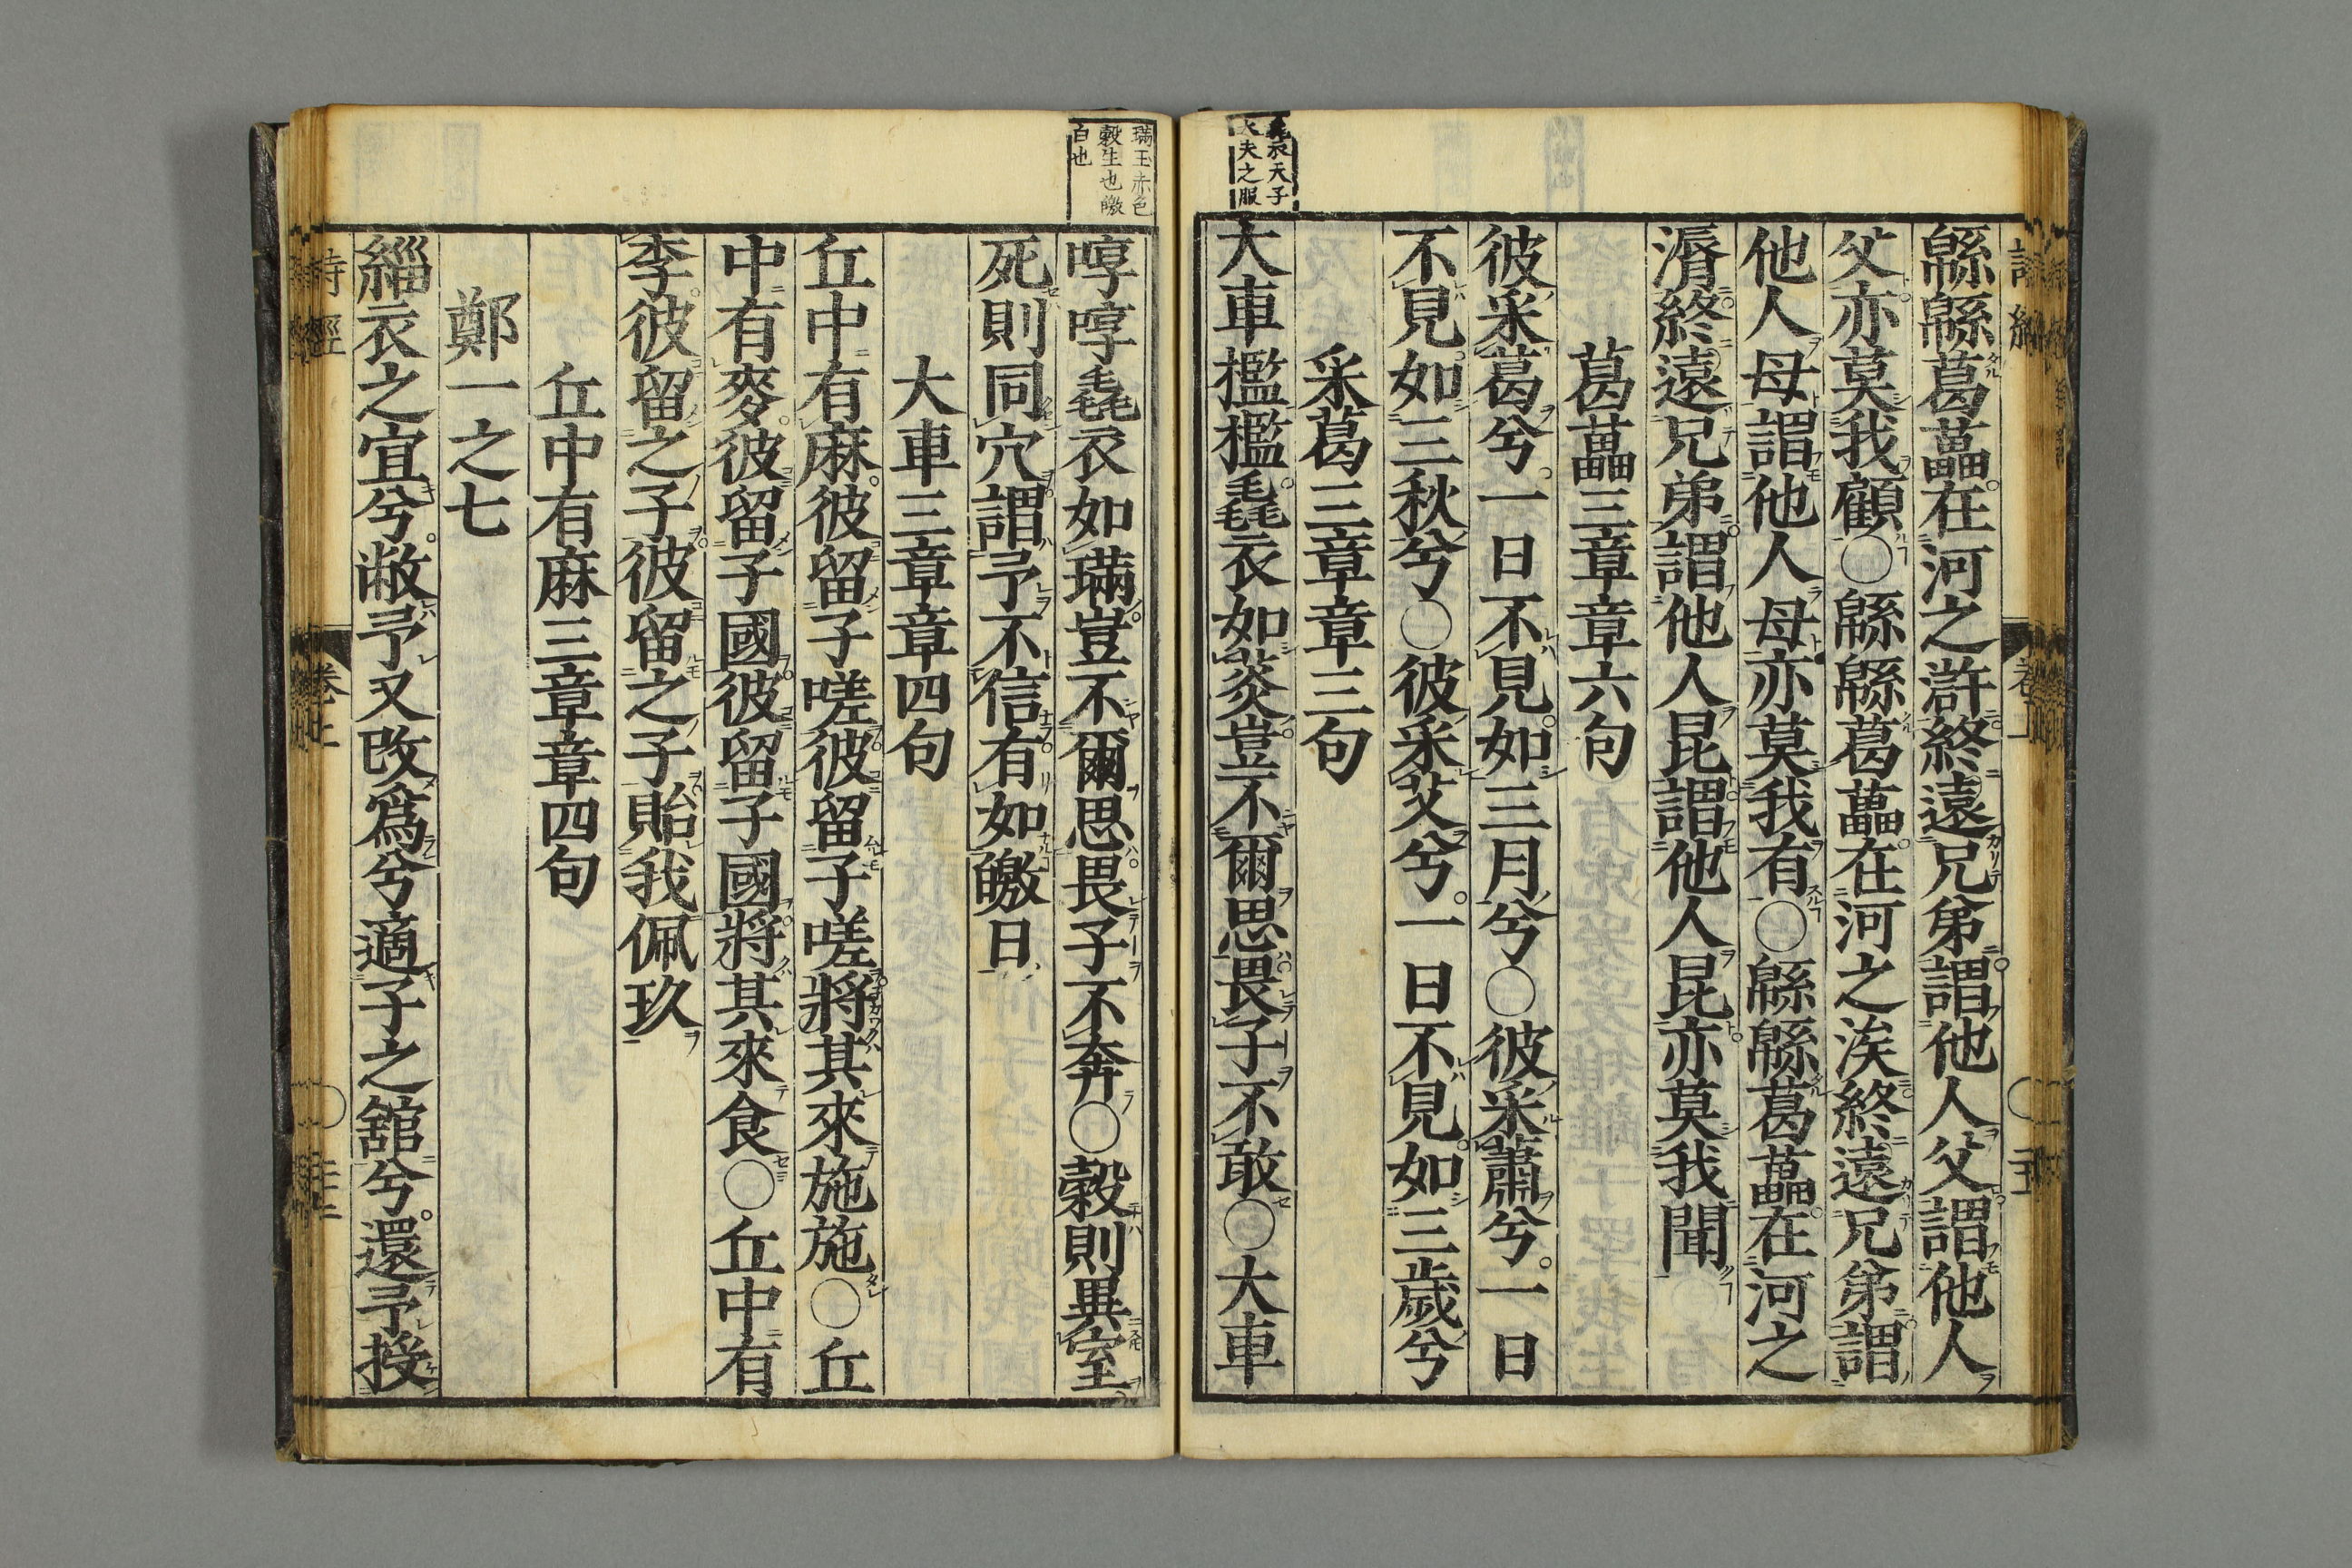 毳衣天子
大夫之服
緜緜葛藟在河之滸終遠兄弟謂他人父謂他人
父亦莫我顧○緜緜葛藟在河之涘終遠兄弟謂
他人母謂他人母亦莫我有○緜緜葛藟在河之
漘終遠兄弟謂他人昆謂他人昆亦莫我聞
葛藟三章章六句
彼采葛兮一日不見如三月兮○彼采蕭兮一日
不見如三秋兮○彼采艾兮一日不見如三歲兮
采葛三章章三句
大車檻檻毳衣如菼豈不爾思畏子不敢○大車
璊玉赤色
穀生也皦
白也
啍啍毳衣如璊豈不爾思畏子不奔○穀則異室
死則同穴謂予不信有如皦日
大車三章章四句
丘中有麻彼留子嗟彼留子嗟將其來施施○丘
中有麥彼留子國彼留子國將其來食○丘中有
李彼留之子彼留之子貽我佩玖
丘中有麻三章章四句
鄭一之七
緇衣之宜兮敝予又改爲兮適子之舘兮還予授
詩經 卷上